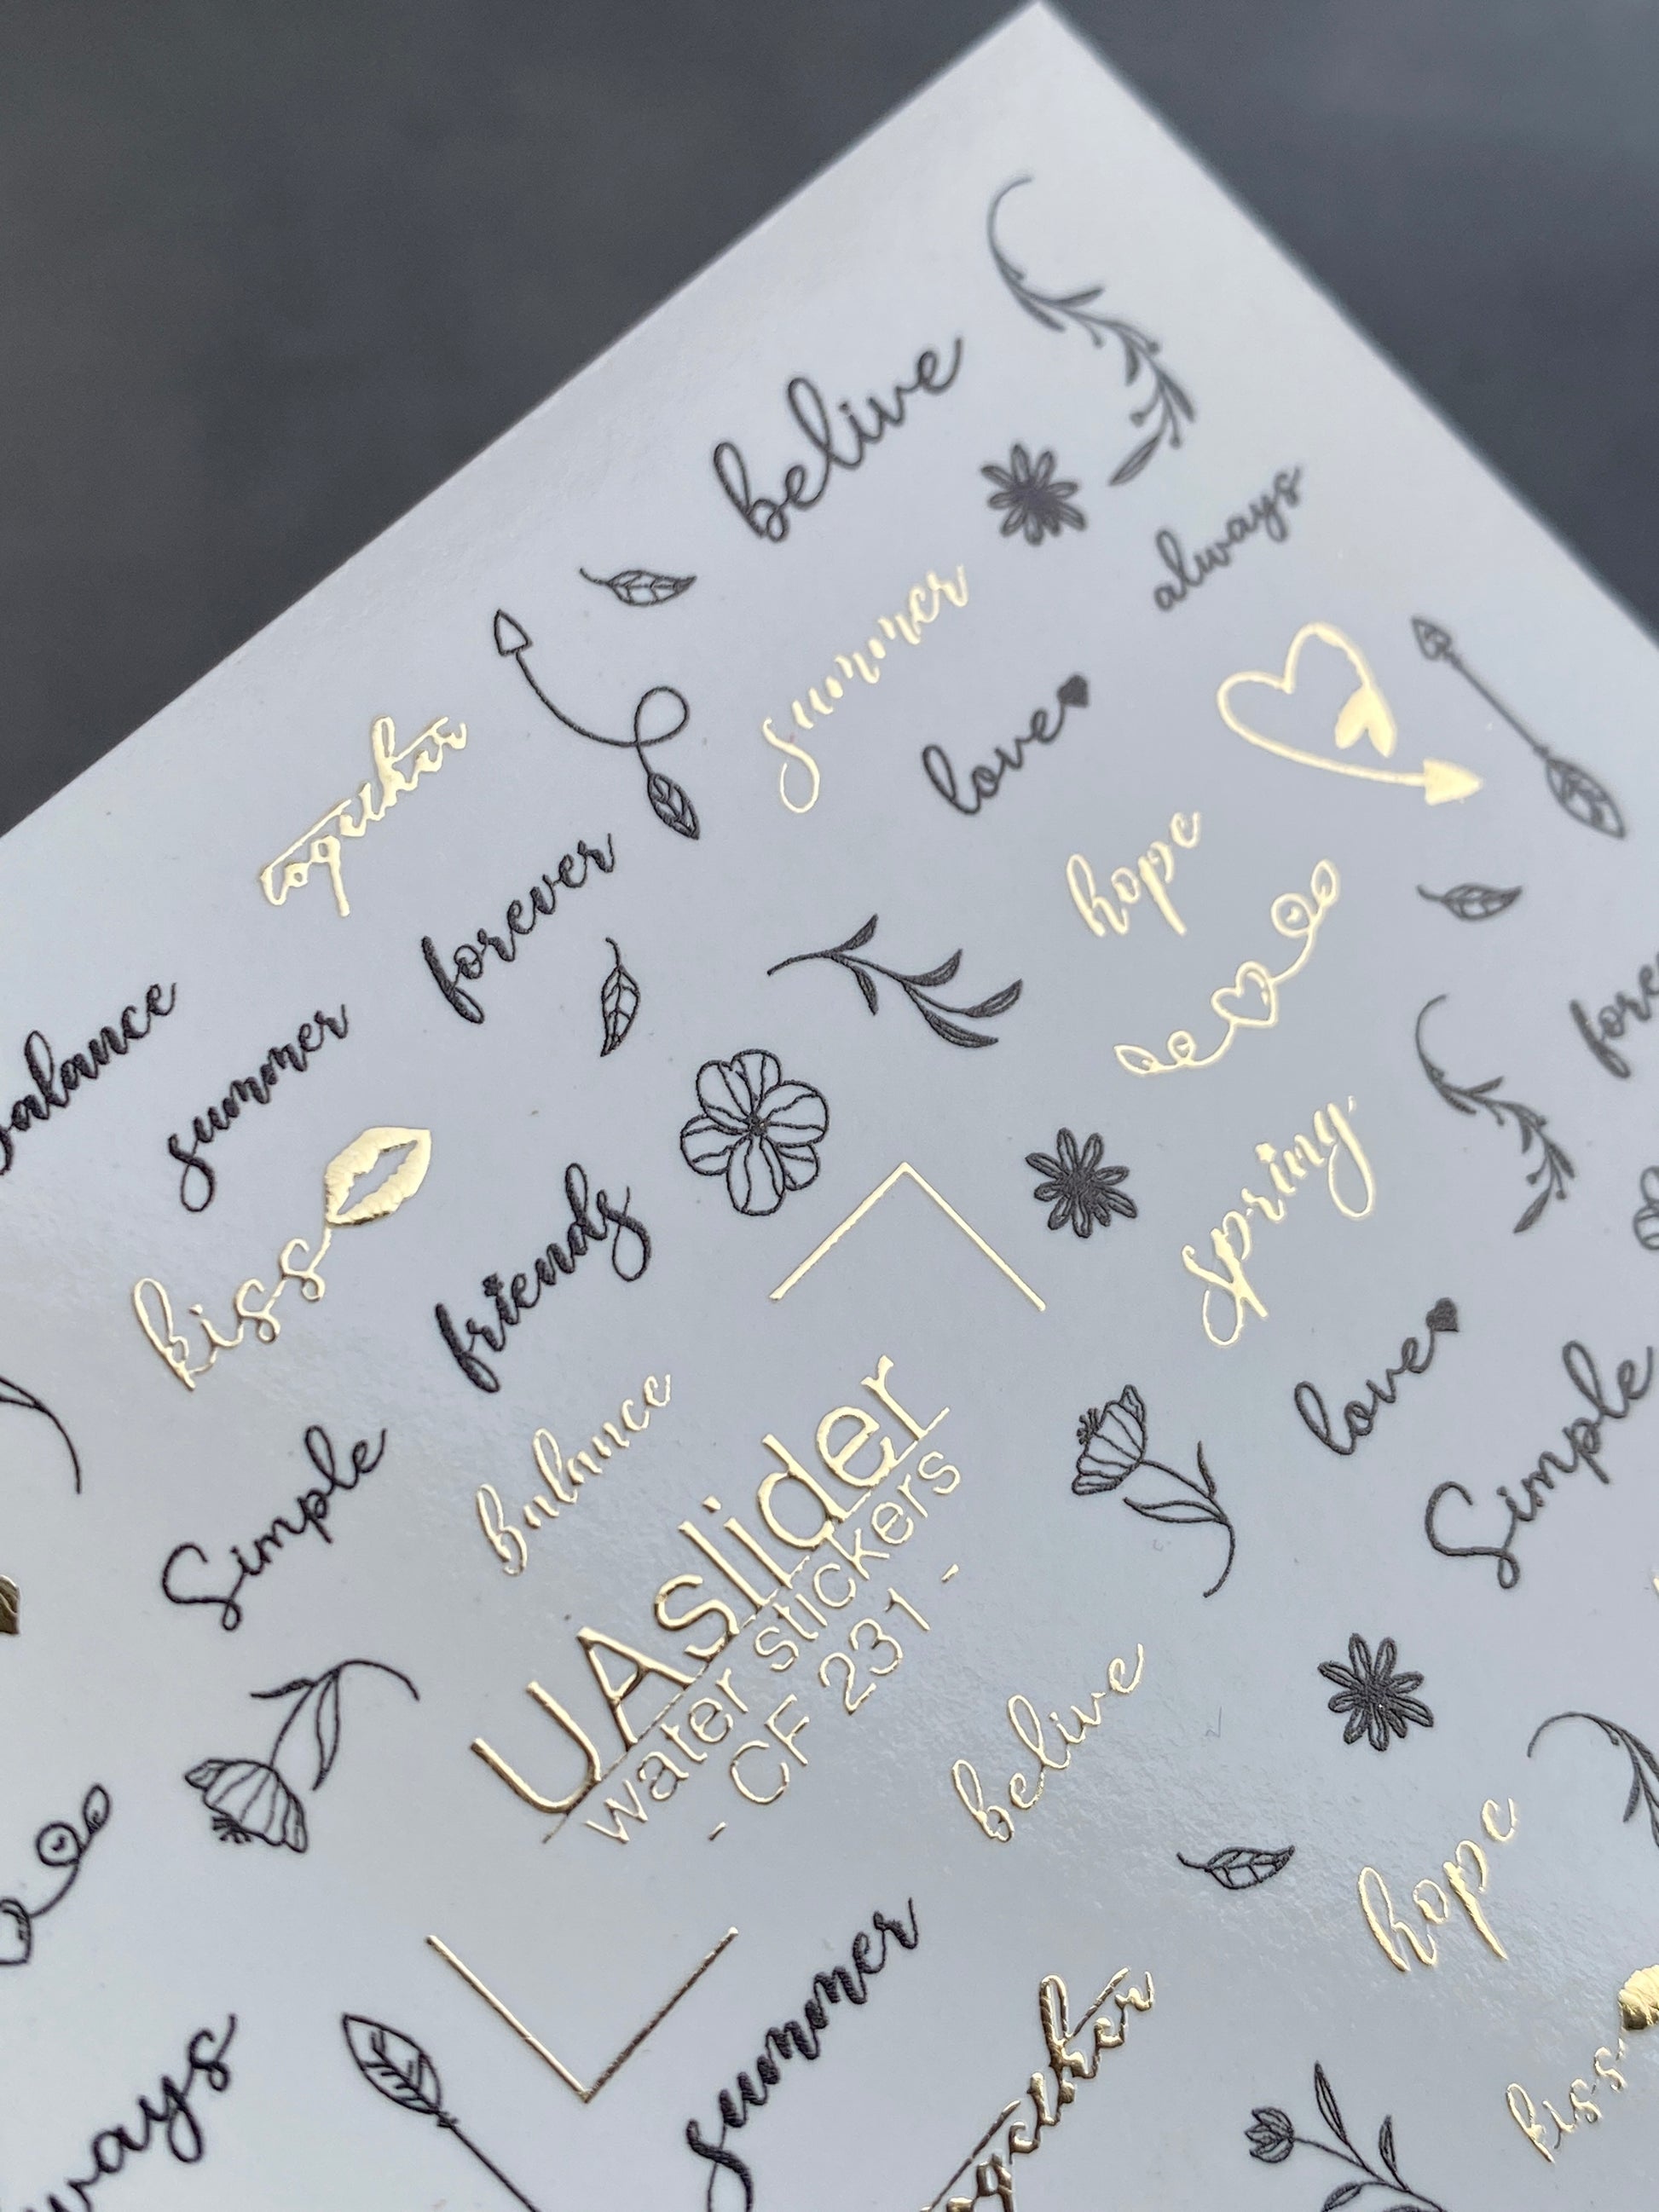 belive
always
summer
love
together
forever
hope
balance
summer
kiss
friends
spring
love
Simple
Balance
Simple
UAslider
water stickers
- CF 231 -
belive
hope
summer
together
kiss